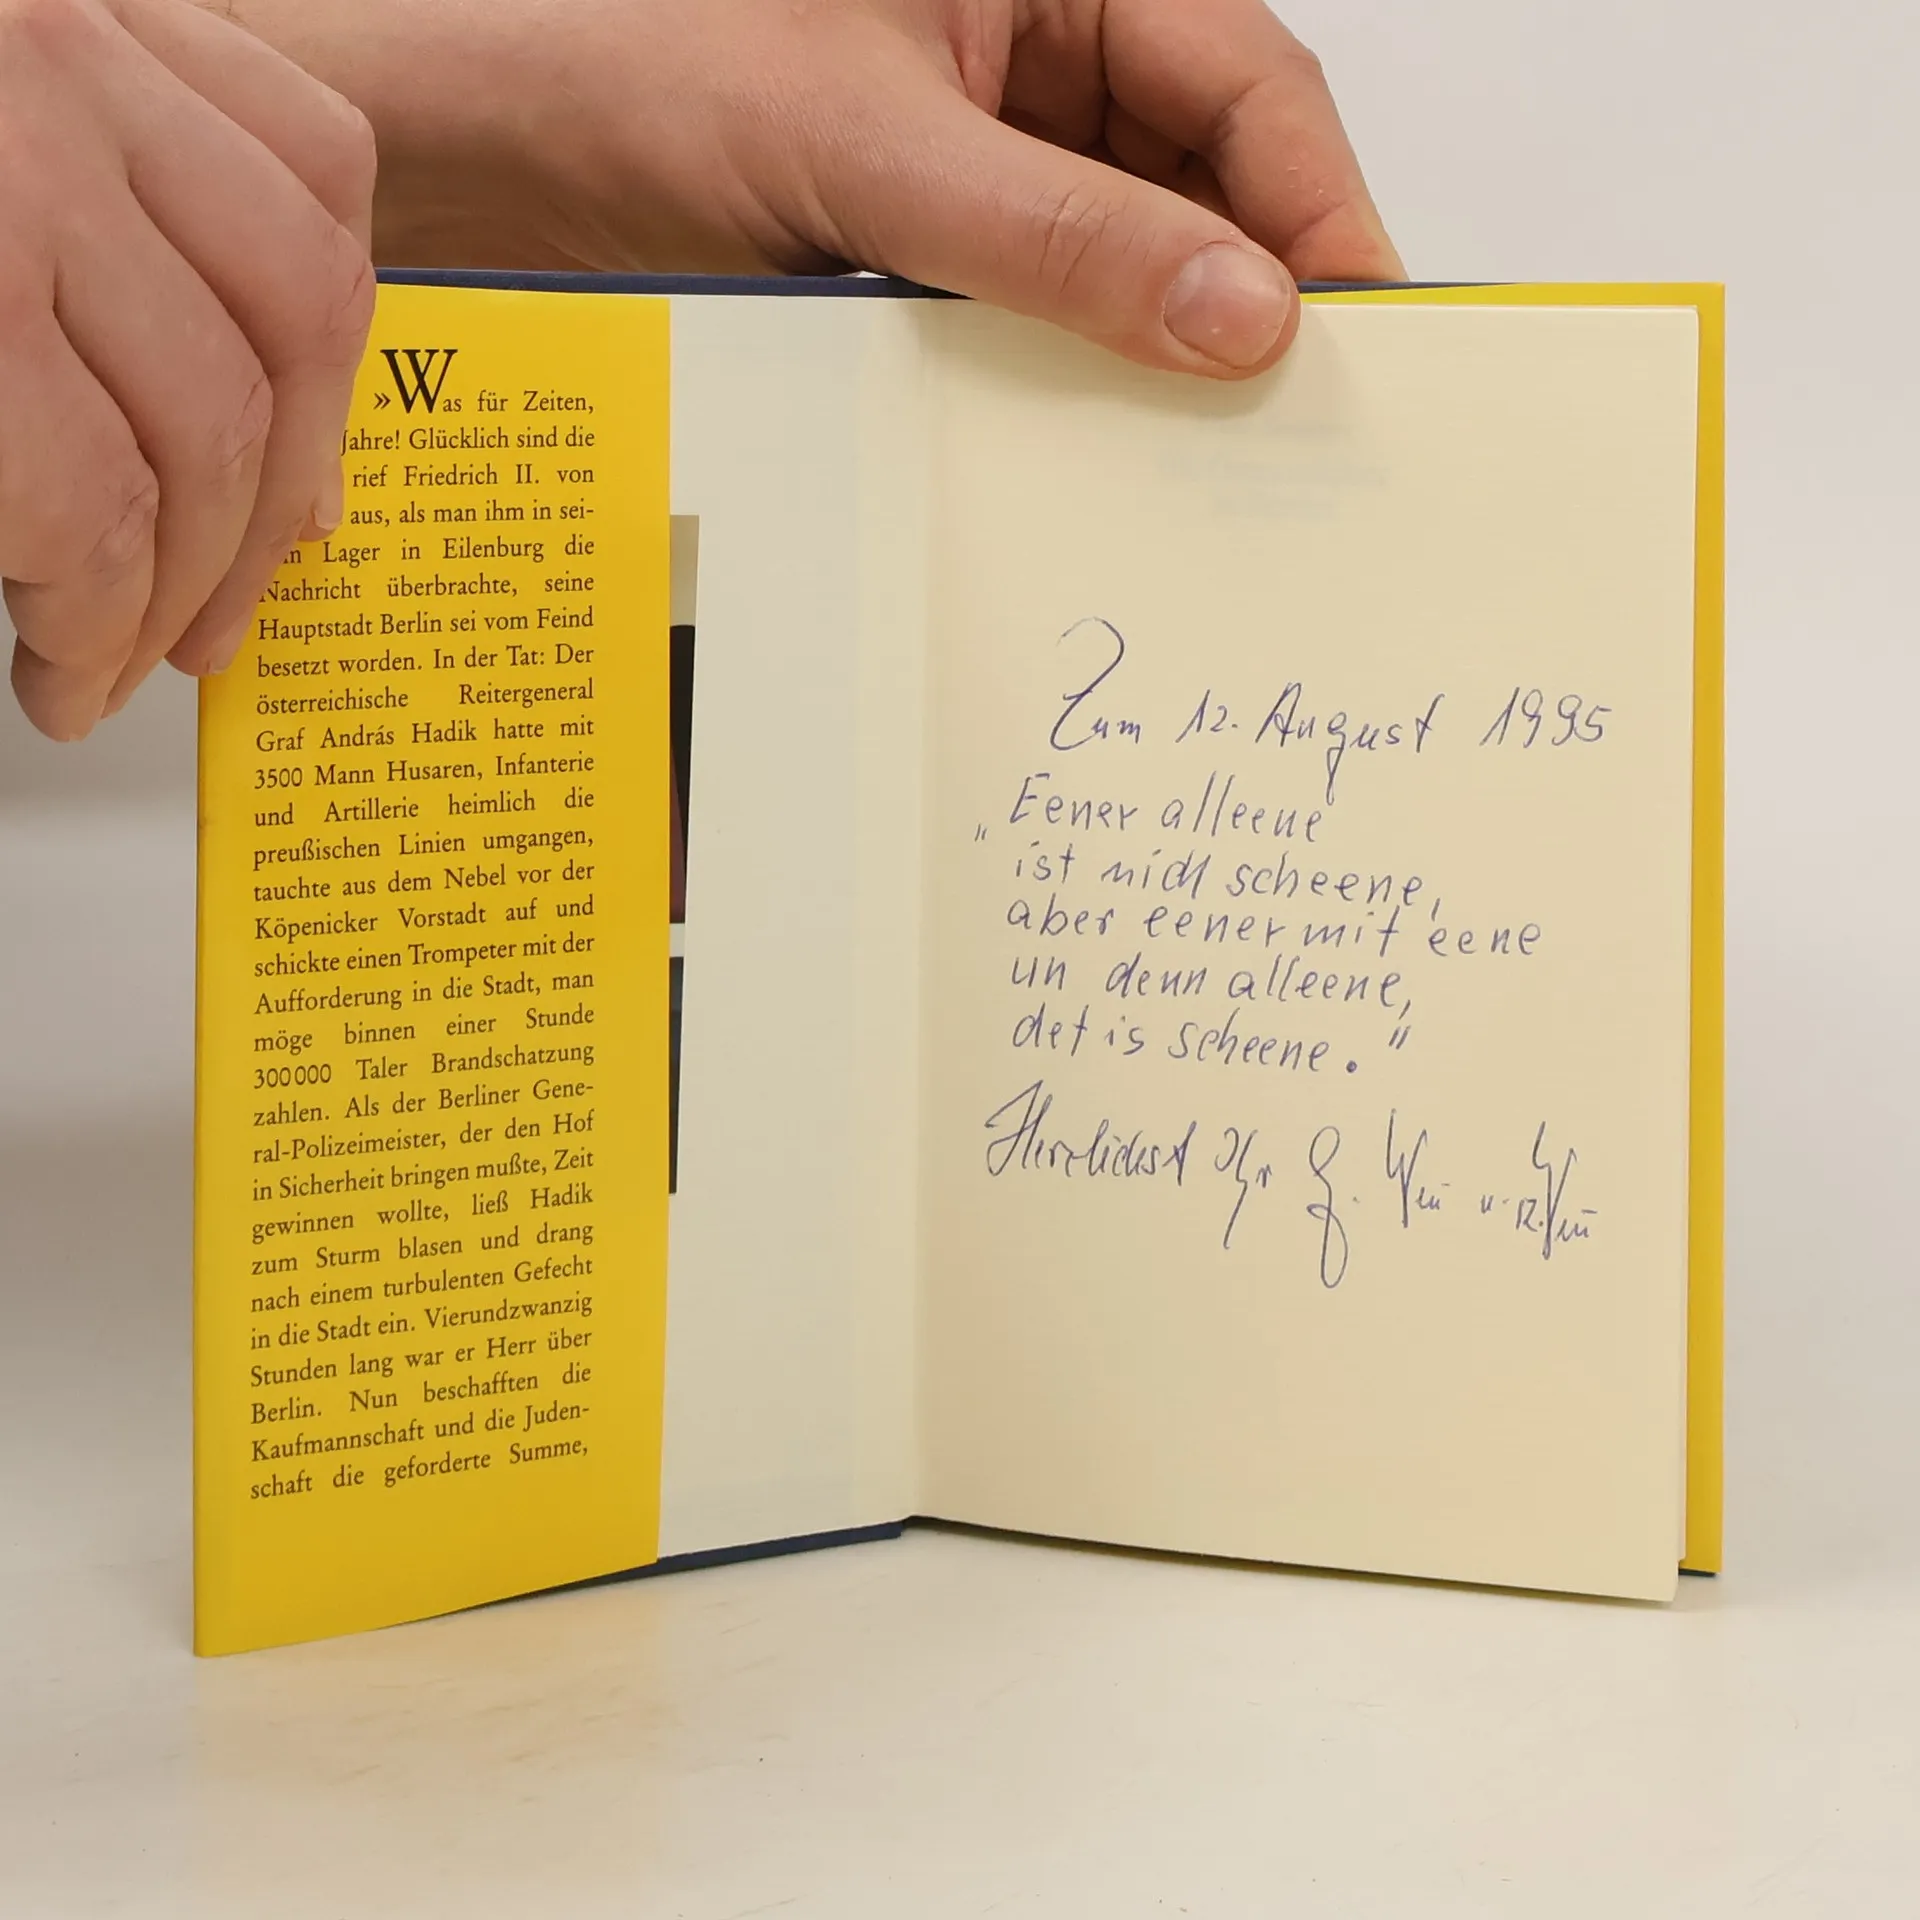 »Was für Zeiten,
Jahre! Glücklich sind die
rief Friedrich II. von
aus, als man ihm in sei-
Lager in Eilenburg die
Nachricht überbrachte, seine
Hauptstadt Berlin sei vom Feind
besetzt worden. In der Tat: Der
österreichische Reitergeneral
Graf András Hadik hatte mit
3500 Mann Husaren, Infanterie
und Artillerie heimlich die
preußischen Linien umgangen,
tauchte aus dem Nebel vor der
Köpenicker Vorstadt auf und
schickte einen Trompeter mit der
Aufforderung in die Stadt, man
möge binnen einer Stunde
300000 Taler Brandschatzung
zahlen. Als der Berliner Gene-
ral-Polizeimeister, der den Hof
in Sicherheit bringen mußte, Zeit
gewinnen wollte, ließ Hadik
zum Sturm blasen und drang
nach einem turbulenten Gefecht
in die Stadt ein. Vierundzwanzig
Stunden lang war er Herr über
Berlin. Nun beschafften die
Kaufmannschaft und die Juden-
schaft die geforderte Summe,
Zum 12. August 1995
„Eener alleene
ist nich scheene,
aber eener mit eene
un denn alleene,
det is scheene."
Herzlichst Ihr